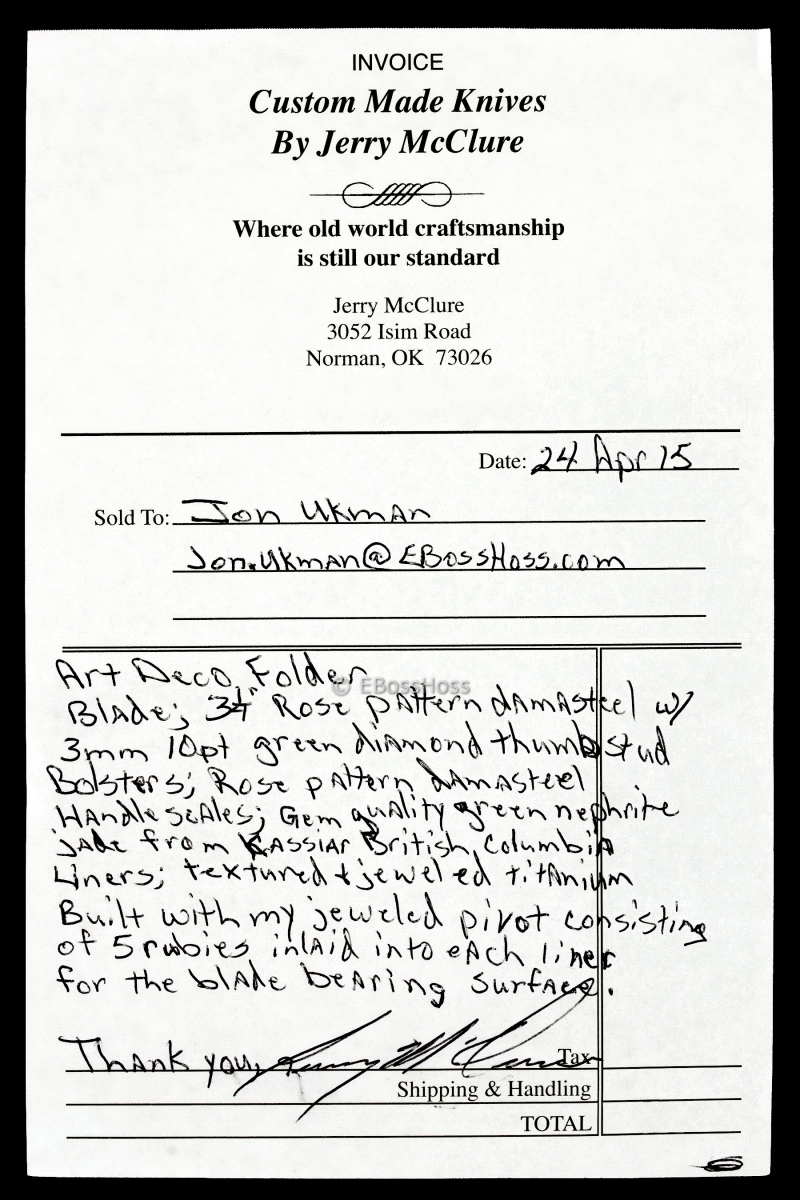 INVOICE
Custom Made Knives
By Jerry McClure
Where old world craftsmanship
is still our standard
Jerry McClure
3052 Isim Road
Norman, OK 73026
Date: 24 Apr 15
Sold To: Jon Ukman
Jon.Ukman@EBossHoss.com
Art Deco Folder
© EBossHoss
Blade; Rose pattern damasteel w/
3mm 10pt green diamond thumb stud
Bolsters; Rose pattern damasteel
Handle scales; Gem quality green nephrite
jade from Kassiar British Columbia
Liners; textured & jeweled titanium
Built with my jeweled pivot consisting
of 5 rubies inlaid into each liner
for the blade bearing surface.
Thank you, Jerry McClure Tax
Shipping & Handling
TOTAL